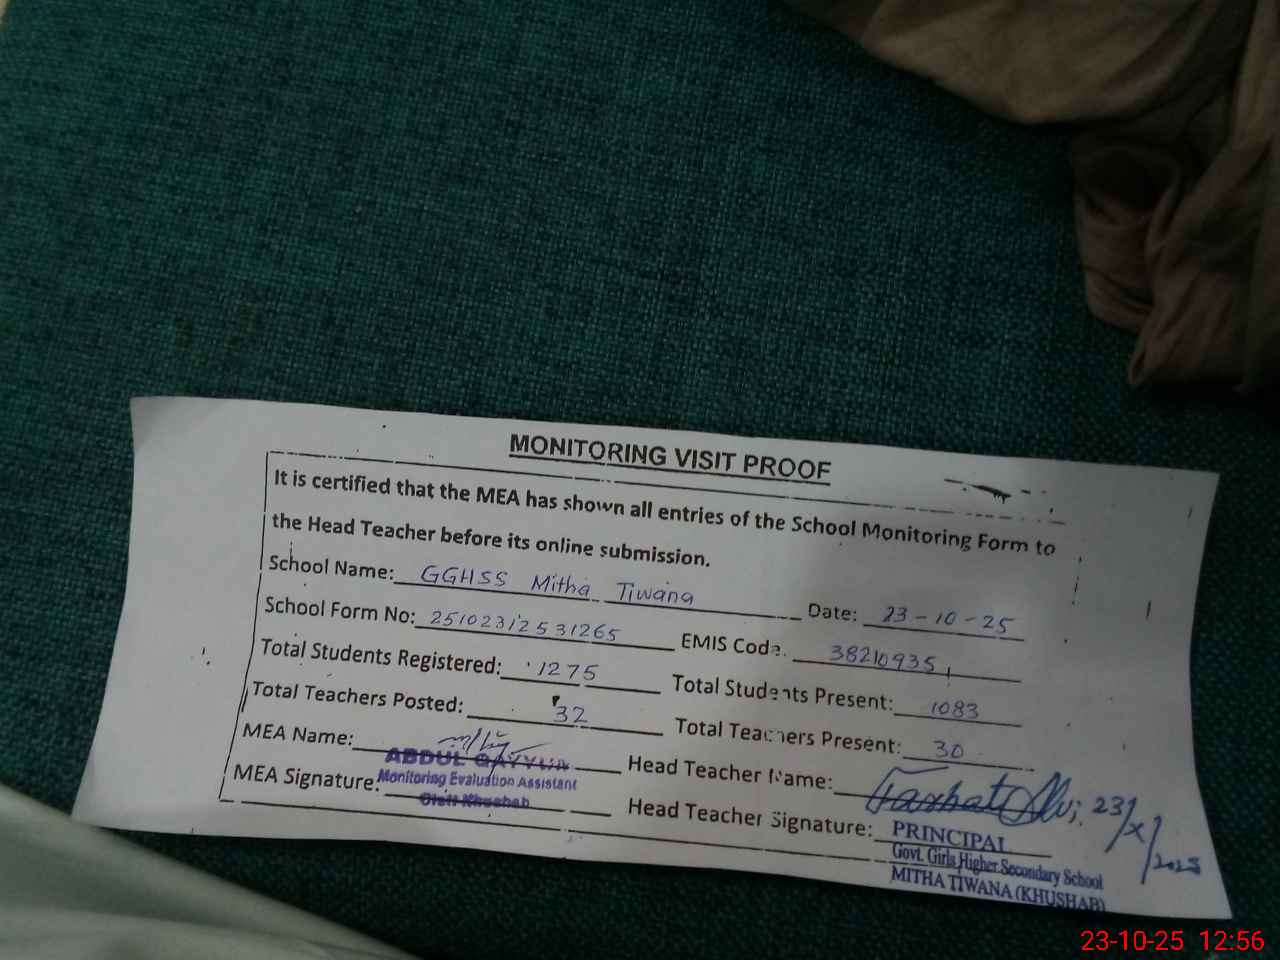 MONITORING VISIT PROOF
It is certified that the MEA has shown all entries of the School Monitoring Form to
the Head Teacher before its online submission.
School Name: GGHSS Mitha Tiwana Date: 23-10-25
School Form No: 25102312531265 EMIS Code. 38210935
Total Students Registered: 1275 Total Students Present: 1083
Total Teachers Posted: 32 Total Teachers Present: 30
MEA Name: ABDUL QAYYUM Head Teacher Name: Farhat Alvi, 23/X/2025
MEA Signature: Monitoring Evaluation Assistant
Distt Khushab
Head Teacher Signature: PRINCIPAL
Govt. Girls Higher Secondary School
MITHA TIWANA (KHUSHAB)
23-10-25 12:56